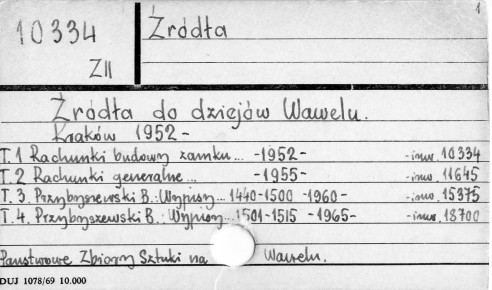 10334
ZII
Źródła
1
Źródła do dziejów Wawelu.
Kraków 1952 -
T. 1 Rachunki budowy zamku... -1952- -inw. 10334
T. 2 Rachunki generalne ... -1955- -inw. 11645
T. 3. Przybyszewski B.: Wypisy... 1440-1500 -1960- -inw. 15375
T. 4. Przybyszewski B.: Wypisy... 1501-1515 -1965- -inw. 18700
Państwowe Zbiory Sztuki na Wawelu.
DUJ 1078/69 10.000